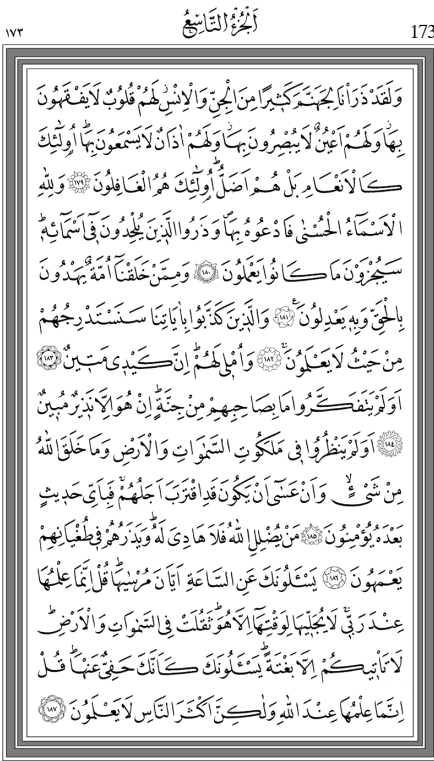 ١٧٣ اَلْجُزْءُ التَّاسِعُ 173
وَلَقَدْ ذَرَأْنَا لِجَهَنَّمَ كَثِيرًا مِنَ الْجِنِّ وَالْاِنْسِۘ لَهُمْ قُلُوبٌ لَا يَفْقَهُونَ
بِهَاۘ وَلَهُمْ اَعْيُنٌ لَا يُبْصِرُونَ بِهَاۘ وَلَهُمْ اٰذَانٌ لَا يَسْمَعُونَ بِهَاۜ اُو۬لٰٓئِكَ
كَالْاَنْعَامِ بَلْ هُمْ اَضَلُّۜ اُو۬لٰٓئِكَ هُمُ الْغَافِلُونَ ﴿١٧٩﴾ وَلِلّٰهِ
الْاَسْمَٓاءُ الْحُسْنٰى فَادْعُوهُ بِهَاۖ وَذَرُوا الَّذ۪ينَ يُلْحِدُونَ ف۪ٓي اَسْمَٓائِه۪ۜ
سَيُجْزَوْنَ مَا كَانُوا يَعْمَلُونَ ﴿١٨٠﴾ وَمِمَّنْ خَلَقْنَٓا اُمَّةٌ يَهْدُونَ
بِالْحَقِّ وَبِه۪ يَعْدِلُونَ۟ ﴿١٨١﴾ وَالَّذ۪ينَ كَذَّبُوا بِاٰيَاتِنَا سَنَسْتَدْرِجُهُمْ
مِنْ حَيْثُ لَا يَعْلَمُونَۚ ﴿١٨٢﴾ وَاُمْل۪ي لَهُمْۜ اِنَّ كَيْد۪ي مَت۪ينٌ ﴿١٨٣﴾
اَوَلَمْ يَتَفَكَّرُوا مَا بِصَاحِبِهِمْ مِنْ جِنَّةٍۜ اِنْ هُوَ اِلَّا نَذ۪يرٌ مُب۪ينٌ
﴿١٨٤﴾ اَوَلَمْ يَنْظُرُوا ف۪ي مَلَكُوتِ السَّمٰوَاتِ وَالْاَرْضِ وَمَا خَلَقَ اللّٰهُ
مِنْ شَيْءٍۙ وَاَنْ عَسٰٓى اَنْ يَكُونَ قَدِ اقْتَرَبَ اَجَلُهُمْۚ فَبِاَيِّ حَد۪يثٍ
بَعْدَهُ يُؤْمِنُونَ ﴿١٨٥﴾ مَنْ يُضْلِلِ اللّٰهُ فَلَا هَادِيَ لَهُۜ وَيَذَرُهُمْ ف۪ي طُغْيَانِهِمْ
يَعْمَهُونَ ﴿١٨٦﴾ يَسْـَٔلُونَكَ عَنِ السَّاعَةِ اَيَّانَ مُرْسٰيهَاۜ قُلْ اِنَّمَا عِلْمُهَا
عِنْدَ رَبّ۪يۚ لَا يُجَلّ۪يهَا لِوَقْتِهَٓا اِلَّا هُوَۜ ثَقُلَتْ فِي السَّمٰوَاتِ وَالْاَرْضِۜ
لَا تَأْت۪يكُمْ اِلَّا بَغْتَةًۜ يَسْـَٔلُونَكَ كَاَنَّكَ حَفِيٌّ عَنْهَاۜ قُلْ
اِنَّمَا عِلْمُهَا عِنْدَ اللّٰهِ وَلٰكِنَّ اَكْثَرَ النَّاسِ لَا يَعْلَمُونَ ﴿١٨٧﴾